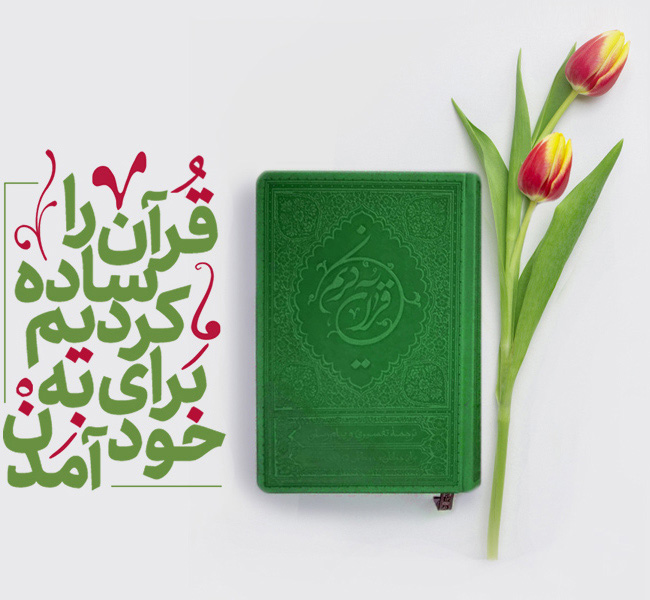 قُرآن را
ساده
کردیم
بَرای به
خود آمدنْ
قرآن کریم